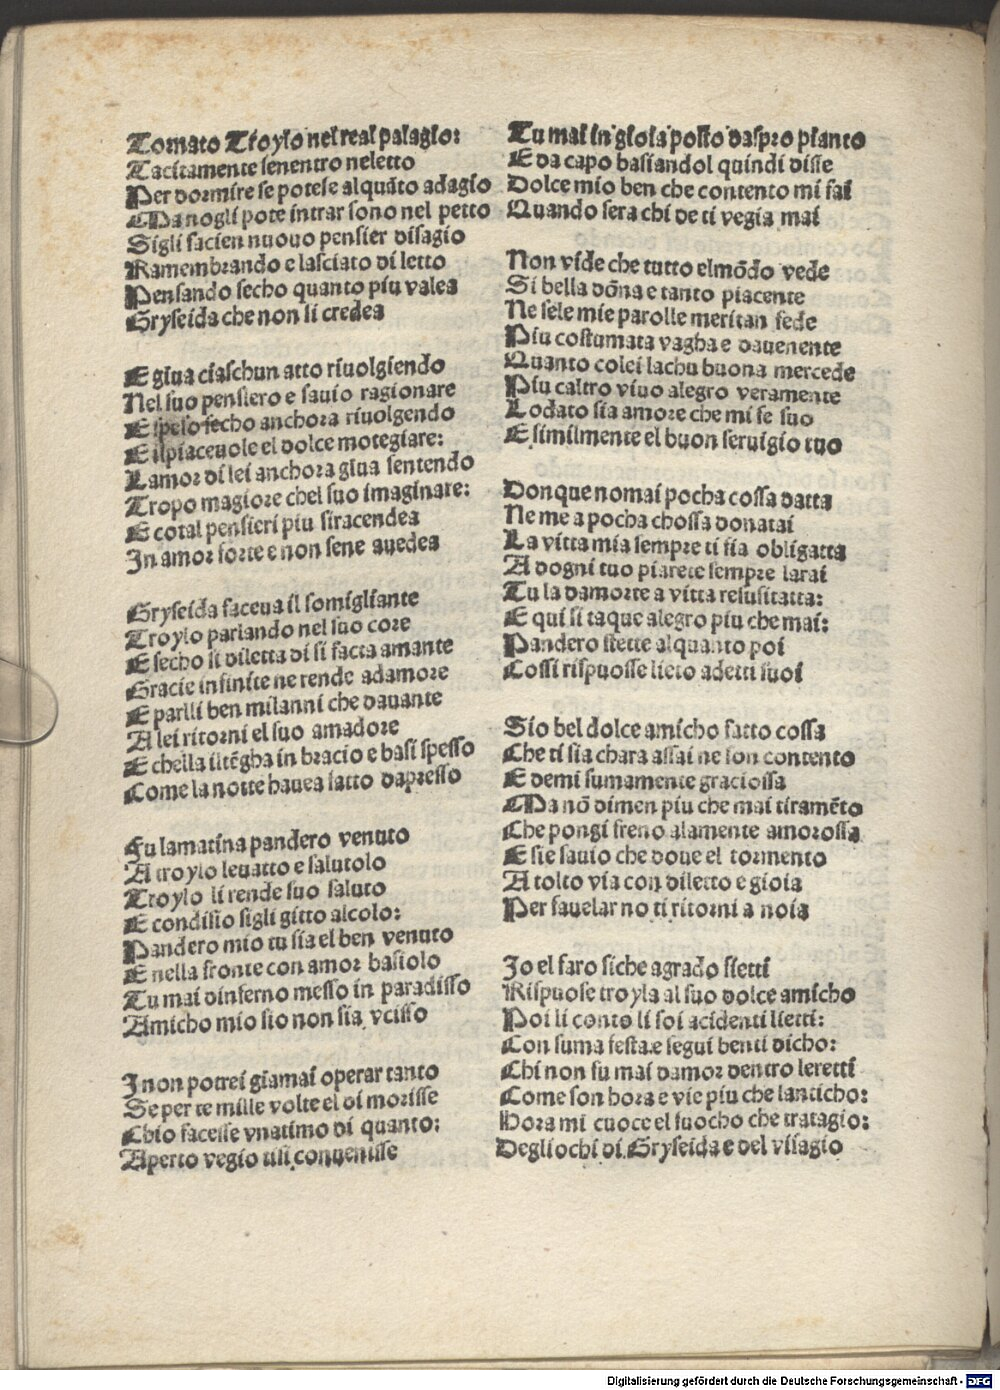 Tornato Troylo nel real palagio:
Tacitamente senentro neletto
Per dormire se potese alquāto adagio
Ma nogli pote intrar sono nel petto
Sigli facien nuouo pensier disagio
Ramembrando e lasciato diletto
Pensando secho quanto piu valea
Gryseida che non si credea

E giua ciaschun atto riuolgiendo
Nel suo pensiero e sauio ragionare
E spesso secho anchora riuolgendo
E il piaceuole el dolce motegiare:
Lamor di lei anchora giua sentendo
Tropo magiore chel suo imaginare:
E cotal pensieri piu siracendea
In amor forte e non sene auedea

Gryseida faceua il somigliante
Troylo parlando nel suo core
E secho si diletta di si facta amante
Gracie infinite ne rende adamore
E parlli ben milanni che dauante
A lei ritorni el suo amadore
E chella il tēgha in bracio e basi spesso
Come la notte hauea fatto dapresso

Fu lamatina pandero venuto
A troylo leuatto e salutolo
Troylo li rende suo saluto
E condisio sigli gitto alcolo:
Pandero mio tu sia el ben venuto
E nella fronte con amor basiolo
Tu mai dinferno messo in paradisso
Amicho mio sio non sia vcisso

I non potrei giamai operar tanto
Se per te mille volte el di morisse
Chio facesse vnatimo di quanto:
Aperto vegio tisi conuenisse

Tu mai in gioia posto daspro pianto
E da capo basiandol quindi disse
Dolce mio ben che contento mi fai
Quando sera chi de ti vegia mai

Non vide che tutto elmōdo vede
Si bella dōna e tanto piacente
Ne sele mie parolle meritan fede
Piu costumata vagha e dauenente
Quanto colei lachu buona mercede
Piu caltro viuo alegro veramente
Lodato sia amore che mi fe suo
E similmente el buon seruigio tuo

Donque nomai pocha cossa datta
Ne me a pocha chossa donatai
La vitta mia sempre ti sia obligatta
A dogni tuo piarete sempre larai
Tu la damorte a vitta resusitatta:
E qui si taque alegro piu che mai:
Pandero stette alquanto poi
Cossi rispuosse lieto adetti suoi

Sio bel dolce amicho fatto cossa
Che ti sia chara assai ne son contento
E demi sumamente graciossa
Ma nō dimen piu che mai tiramēto
Che pongi freno alamente amorossa
E sie sauio che doue el tormento
A tolto via con diletto e gioia
Per fauelar no ti ritorni a noia

Io el faro siche agrado sietti
Rispuose troyla al suo dolce amicho
Poi li conto li soi acidenti lietti:
Con suma festa.e segui benti dicho:
Chi non fu mai damor dentro leretti
Come son hora e vie piu che lanticho:
Hora mi cuoce el fuocho che tratagio:
Degliochi di Gryseida e del visagio

Digitalisierung gefördert durch die Deutsche Forschungsgemeinschaft - DFG